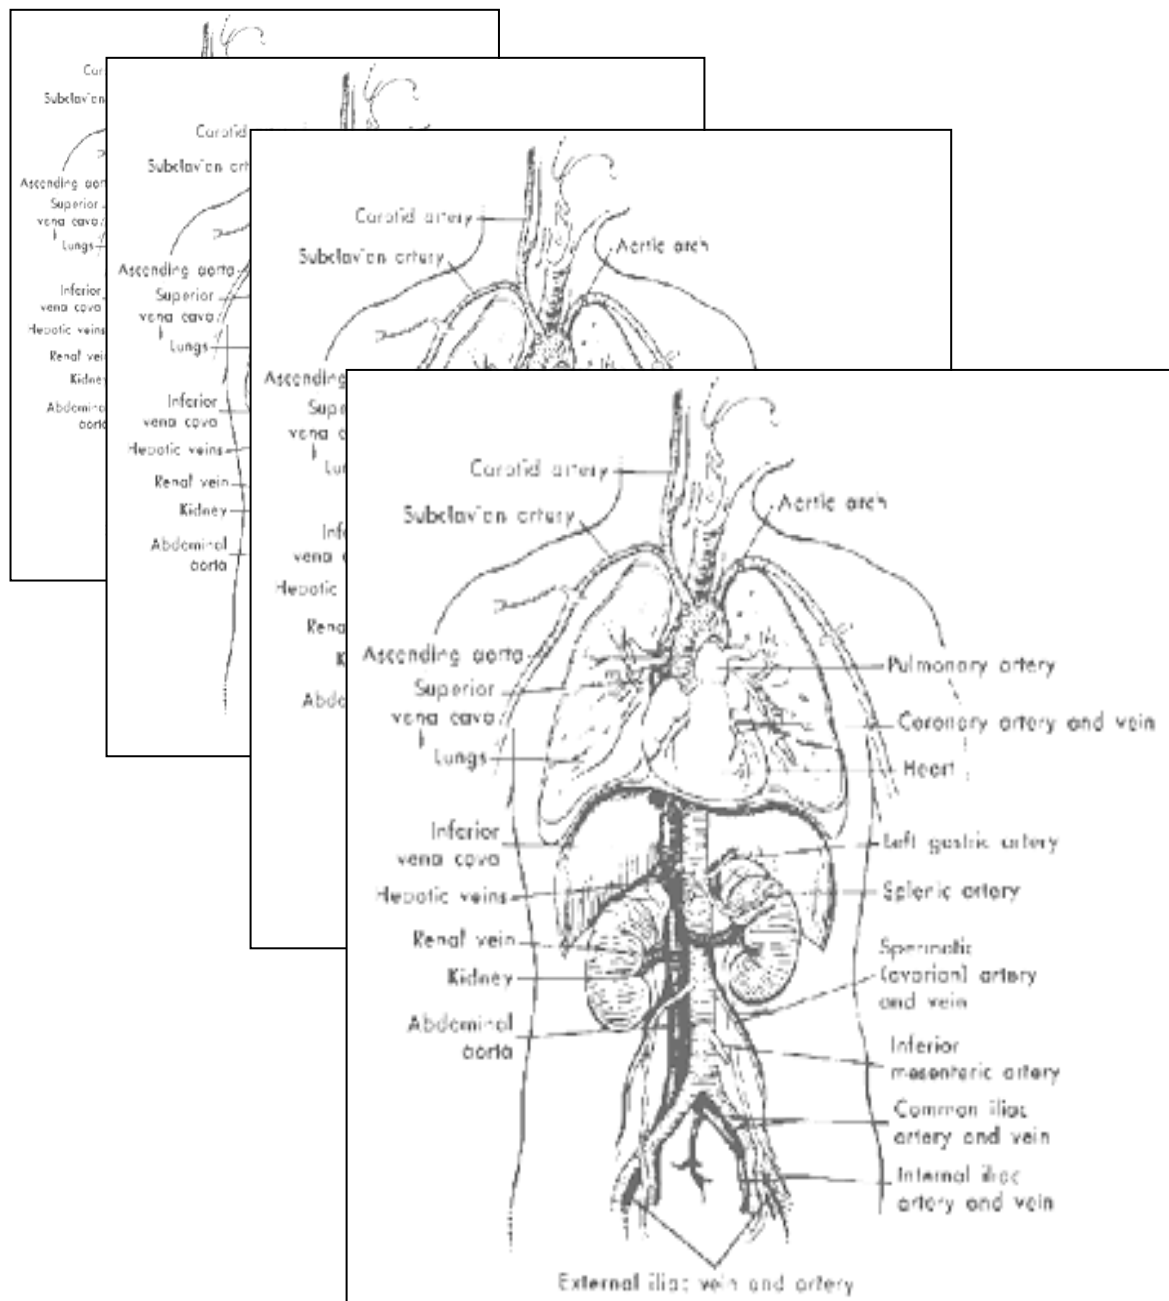 Subclavian
Ascending
Superior
vena cava
Lungs
Inferior
vena cava
Hepatic veins
Renal
Abdominal
Carotid
Subclavian
Ascending aorta
Superior
vena cava
Lungs
Inferior
vena cava
Hepatic veins
Renal vein
Kidney
Abdominal
aorta
Carotid artery
Subclavian artery
Aortic arch
Ascending
vena
vena
Hepatic
Carotid artery
Subclavian artery
Aortic arch
Ascending aorta
Superior
vena cava
Lungs
Inferior
vena cava
Hepatic veins
Renal vein
Kidney
Abdominal
aorta
Pulmonary artery
Coronary artery and vein
Heart
Left gastric artery
Splenic artery
Spermatic
(ovarian) artery
and vein
Inferior
mesenteric artery
Common iliac
artery and vein
Internal iliac
artery and vein
External iliac vein and artery